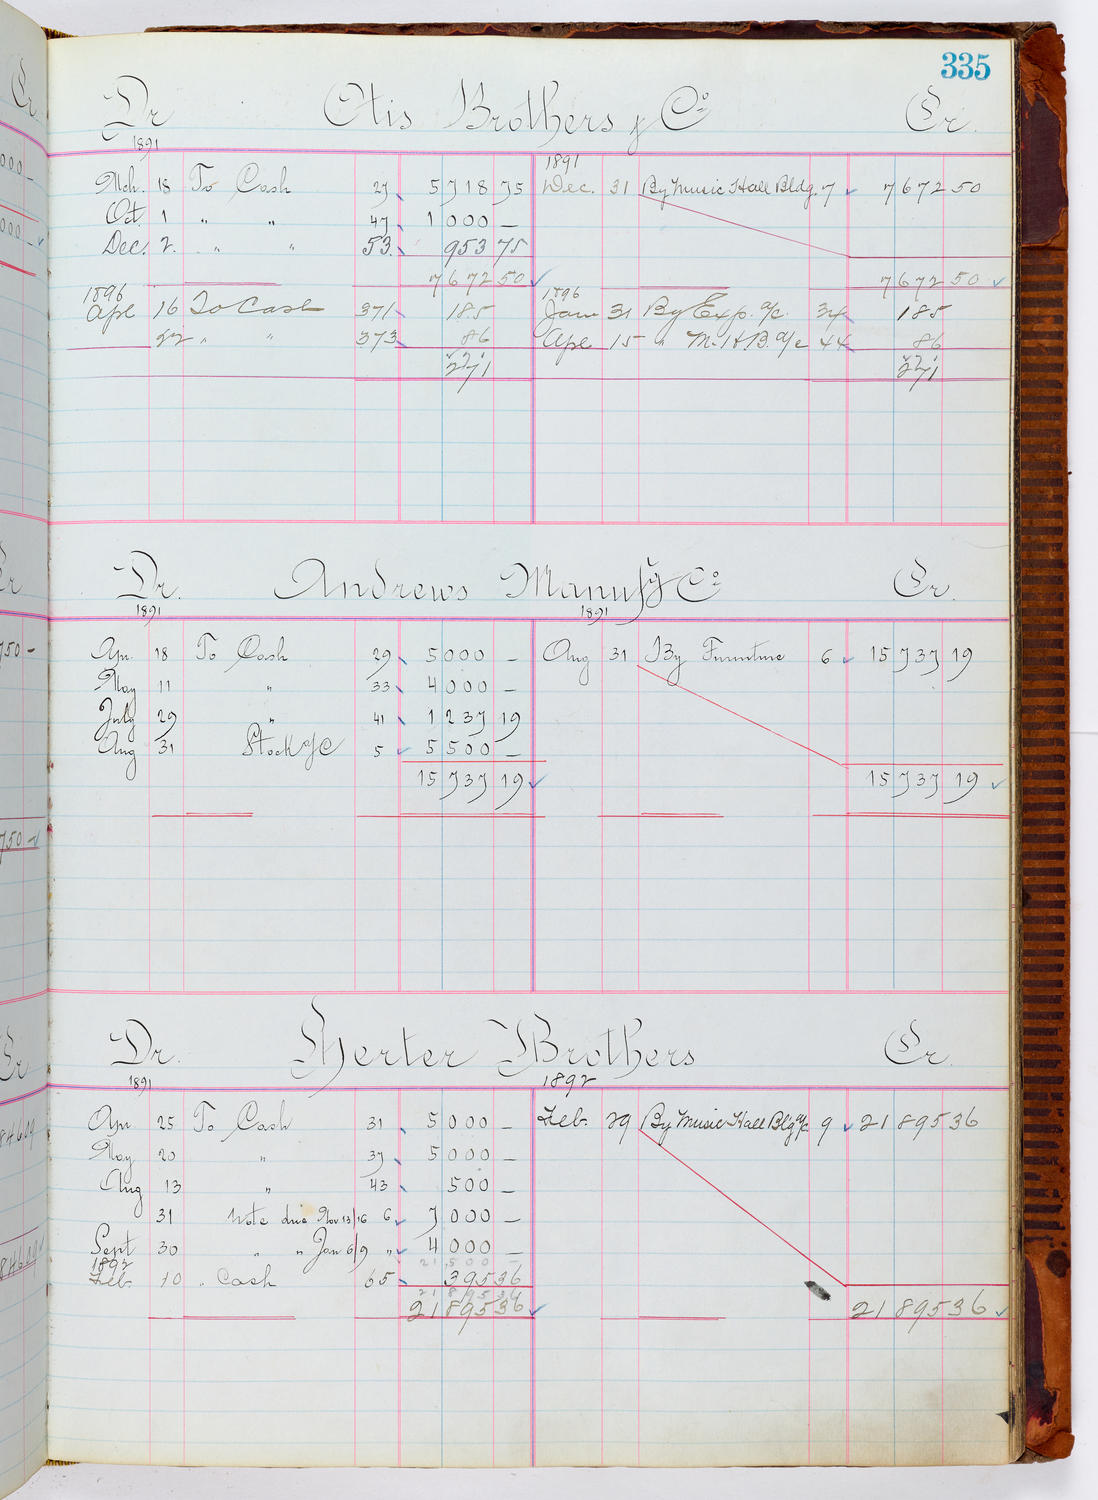 335
Dr Otis Brothers & Co Cr.
1891 1891
Mch. 18 To Cash 27 5718 75 Dec. 31 By Music Hall Bldg. 7 7672 50
Oct 1 " " 47 1000 —
Dec. 2. " " 53 953 75
7672 50 7672 50
1896 1896
Apl 16 To Cash 371 185 Jan 31 By Exp. a/c. 34 185
27 " " 373 86 Apl 15 " M. H B. a/c 44 86
271 271
Dr. Andrews Manufg Co Cr.
1891 1891
Apr. 18 To Cash 29 5000 — Aug 31 By Furniture 6 15737 19
May 11 " 33 4000 —
July 29 " 41 1237 19
Aug 31 Stock a/c 5 5500 —
15737 19 15737 19
Dr. Herter Brothers Cr.
1891 1892
Apr 25 To Cash 31 5000 — Feb. 29 By Music Hall Bldg a/c 9 21895 36
May 20 " 37 5000 —
Aug 13 " 43 500 —
31 Note due Nov 13/16 6 7000 —
Sept 30 " " Jan 6/9 " 4000 —
1892 21 500 —
Feb. 10 " Cash 65 395 36
21 895 36
21895 36 21895 36